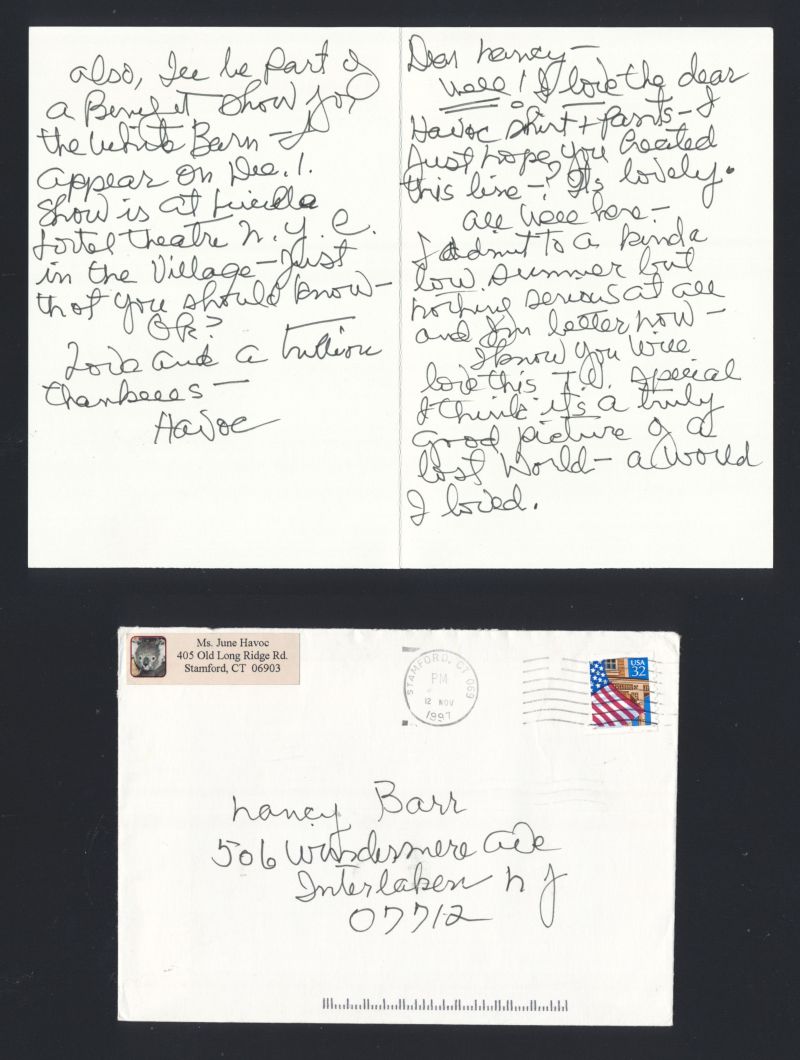 Dear Nancy —
Well! I love the dear
Havoc shirt + pants — I
Just hope you created
this line —? Its lovely.
all well here —
I admit to a kinda
low summer but
nothing serious at all
and I'm better now —
I know you will
love this T.V. special
I think it's a truly
Good picture of a
lost World — a world
I loved.
also, I'll be Part of
a Benefit show for
the White Barn — I
appear on Dec. 1.
Show is at Lucille
Lortel theatre N.Y.C.
in the Village — Just
that you should know —
OK?
Love and a trillion
thankeees —
Havoc
Ms. June Havoc
405 Old Long Ridge Rd.
Stamford, CT 06903
STAMFORD, CT 069
PM
12 NOV
1997
USA
32
Nancy Barr
506 Windermere Ave
Interlaken N J
07712